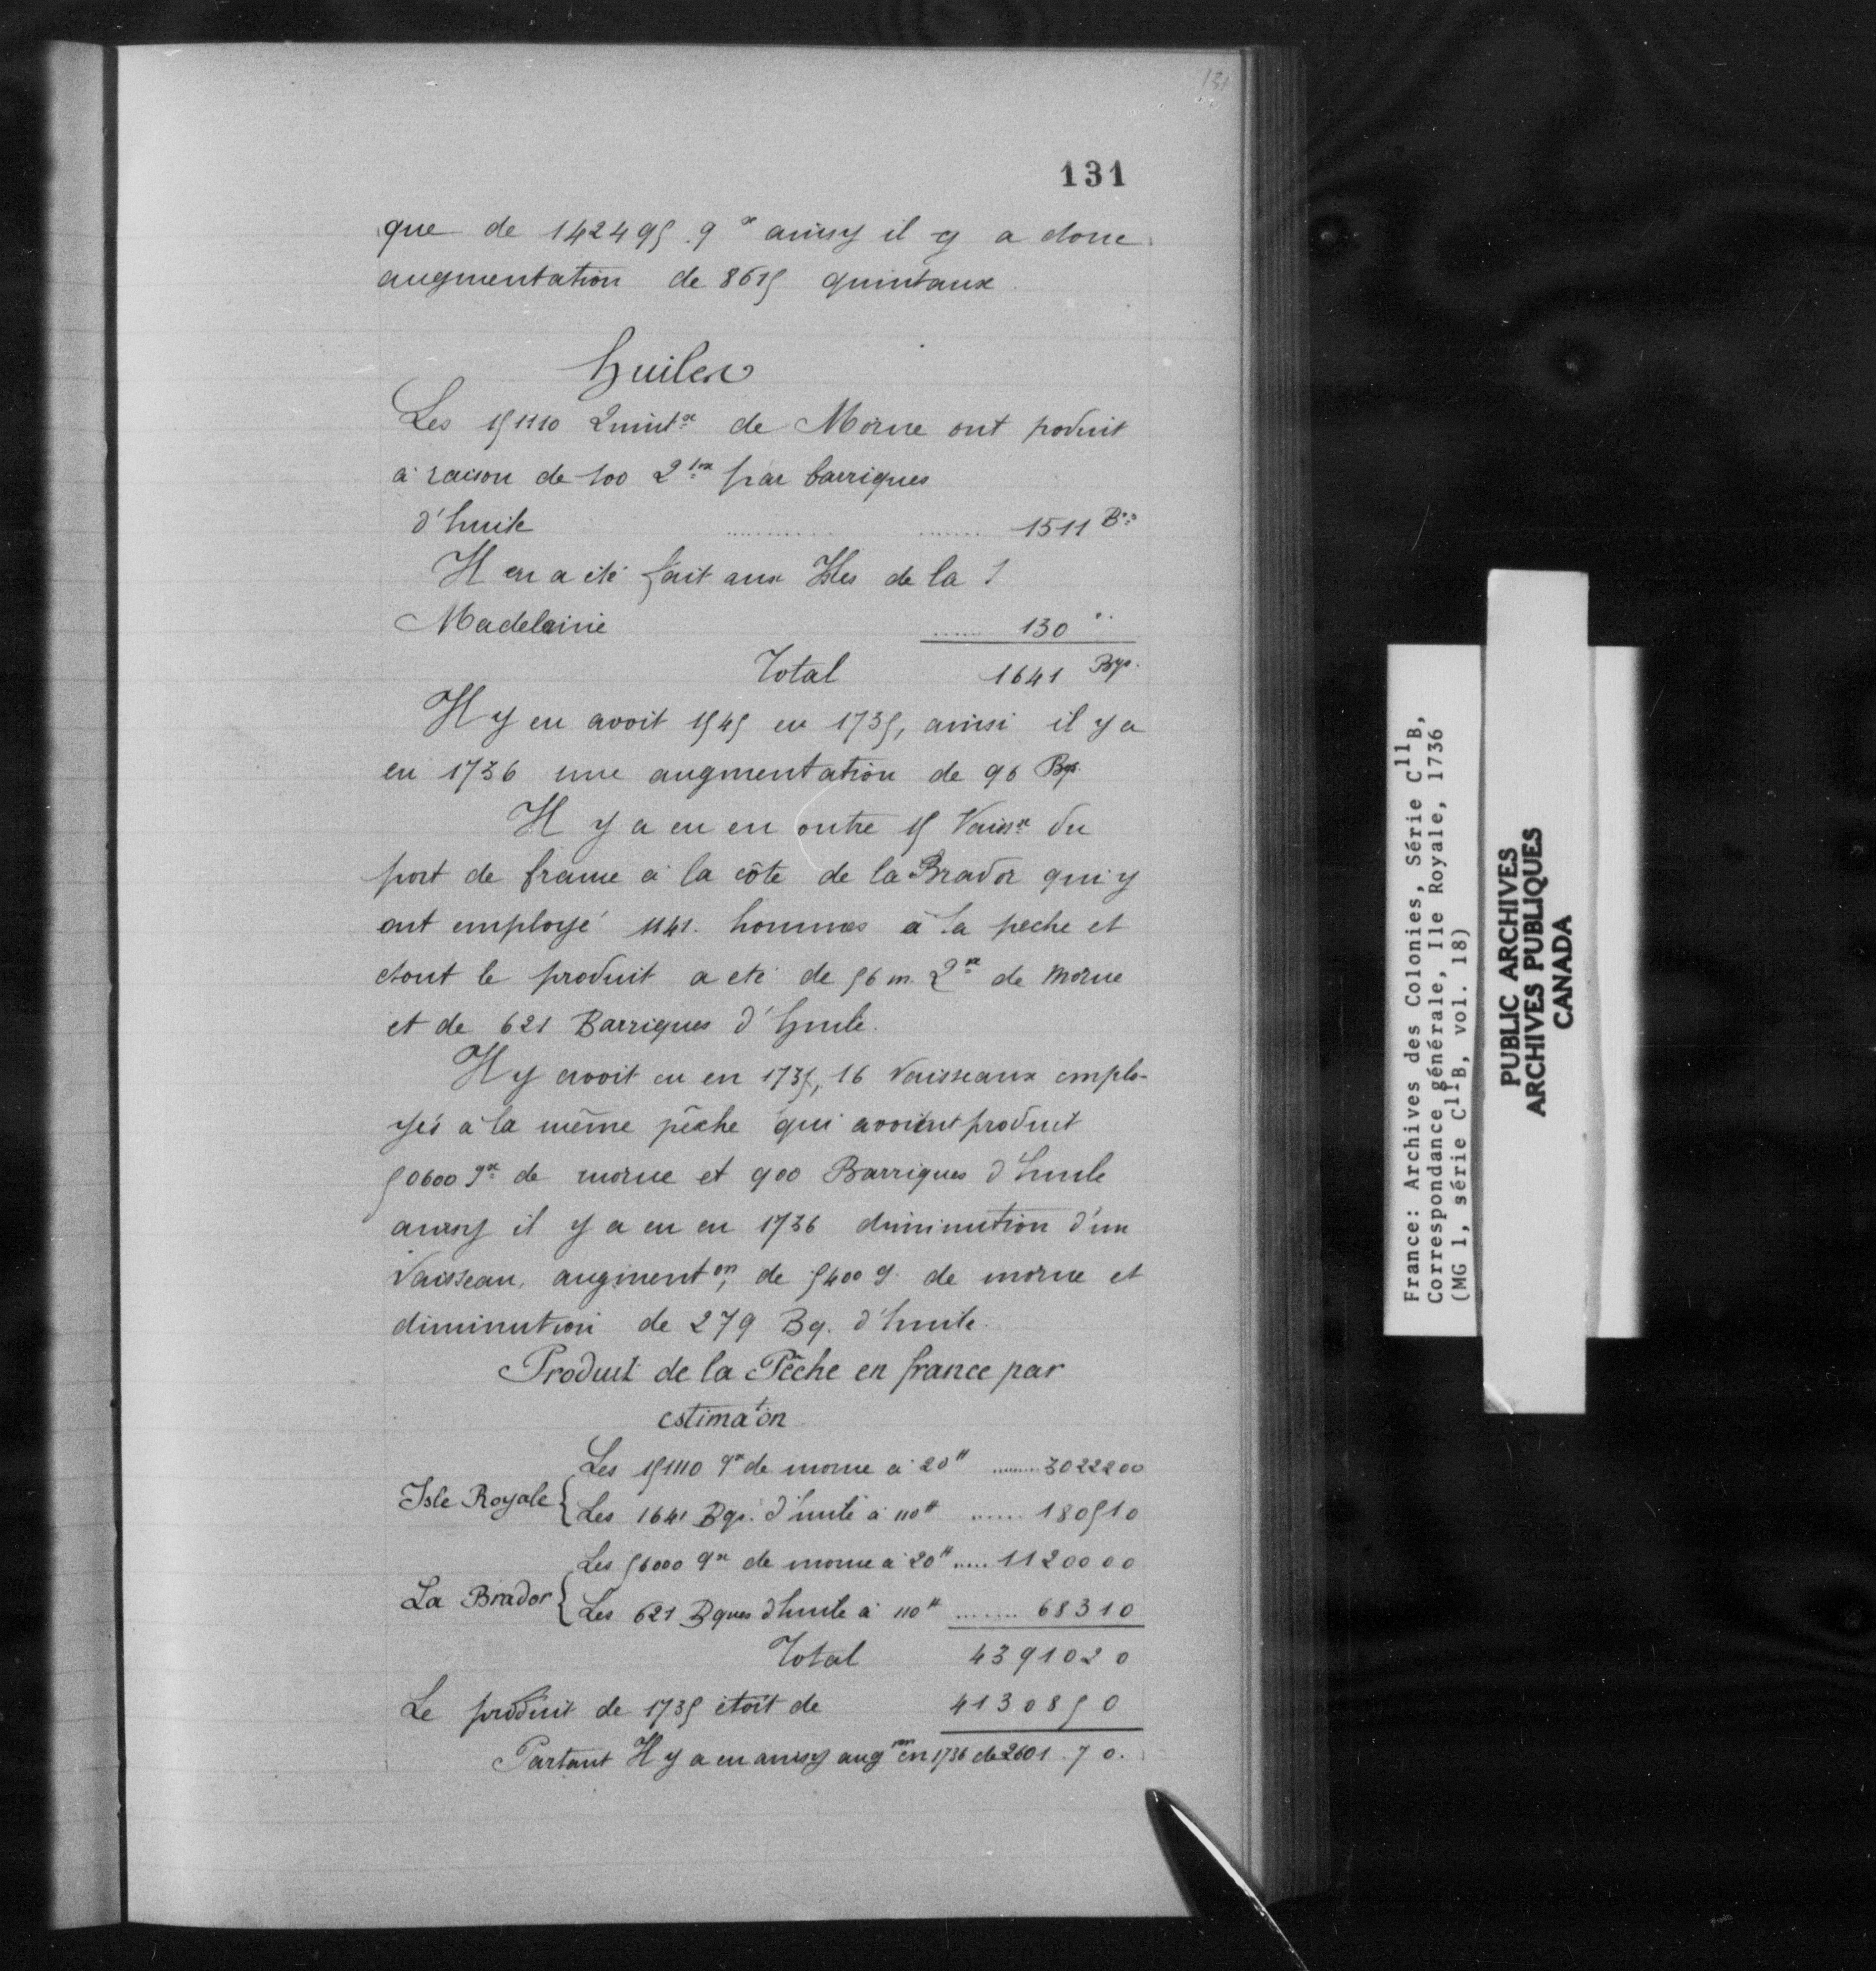 131
131
que de 142495 qx ainsy il y a donc
augmentation de 8615 quintaux
huiles
Les 151110 Quintx de Morue ont produit
à raison de 100 Qtx par barriques
d'huile ........... ....... 1511 Bs
Il en a été fait aux Isles de la
Madelaine ...... 130 "
Total 1641 Bqs.
Il y en avoit 1545 en 1735, ainsi il y a
en 1736 une augmentation de 96 Bqs.
Il y a eu en outre 15 Vaissx du
port de france à la côte de la Brador qui y
ont employé 1141. hommes à la peche et
dont le produit a eté de 56 m. Qx de morue
et de 621 Barriques d'huile.
Il y avoit eu en 1735, 16 Vaisseaux emplo-
yés à la même pêche qui avoient produit
50600 qx de morue et 900 Barriques d'huile
ainsy il y a eu en 1736 diminution d'un
Vaisseau, augmenton, de 5400 q. de morue et
diminution de 279 Bq. d'huile.
Produit de la Pêche en france par
estimaton
Les 151110 qx de morue à 20tt ........ 3022200
Isle Royale { Les 1641 Bqs. d'huile à 110tt ...... 180510
Les 56000 qx de morue à 20tt ..... 1120000
La Brador { Les 621 Bques d'huile à 110tt ........ 68310
Total 4391020
Le produit de 1735 étoit de 4130850
Partant Il y a eu ainsy augon en 1736 de 260170.
France: Archives des Colonies, Série C11B,
Correspondance générale, Ile Royale, 1736
(MG 1, série C11B, vol. 18)
PUBLIC ARCHIVES
ARCHIVES PUBLIQUES
CANADA